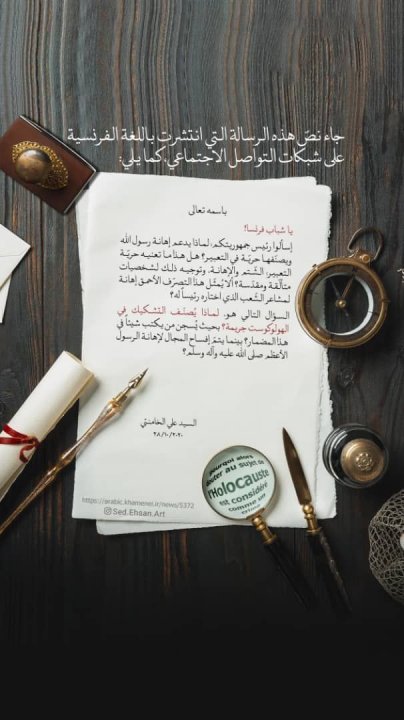 جاء نصّ هذه الرسالة التي انتشرت باللغة الفرنسية
على شبكات التواصل الاجتماعي، كما يلي:
باسمه تعالی
یا شباب فرنسا!
إسألوا رئیس جمهوریتکم، لماذا یدعم إهانة رسول الله
ویصنّفها حریّة في التعبیر؟ هل هذا ما تعنیه حریّة
التعبیر: الشّتم والإهانة، وتوجیه ذلك لشخصیات
متألّقة ومقدّسة؟ ألا یُمثّل هذا التصرّف الأحمق إهانة
لمشاعر الشّعب الذي اختاره رئیساً له؟
السؤال التالي هو، لماذا یُصنّف التشکیك في
الهولوکوست جریمة؟ بحیث یُسجن من یکتب شیئاً في
هذا المضمار؟ بینما یتمّ إفساح المجال لإهانة الرسول
الأعظم صلی الله علیه وآله وسلّم؟
السید علي الخامنئي
٢٨/١٠/٢٠٢٠
https://arabic.khamenei.ir/news/5372
Sed.Ehsan.Art
pourquoi alors
douter au sujet de
l'Holocauste
est considéré
comme un
crime